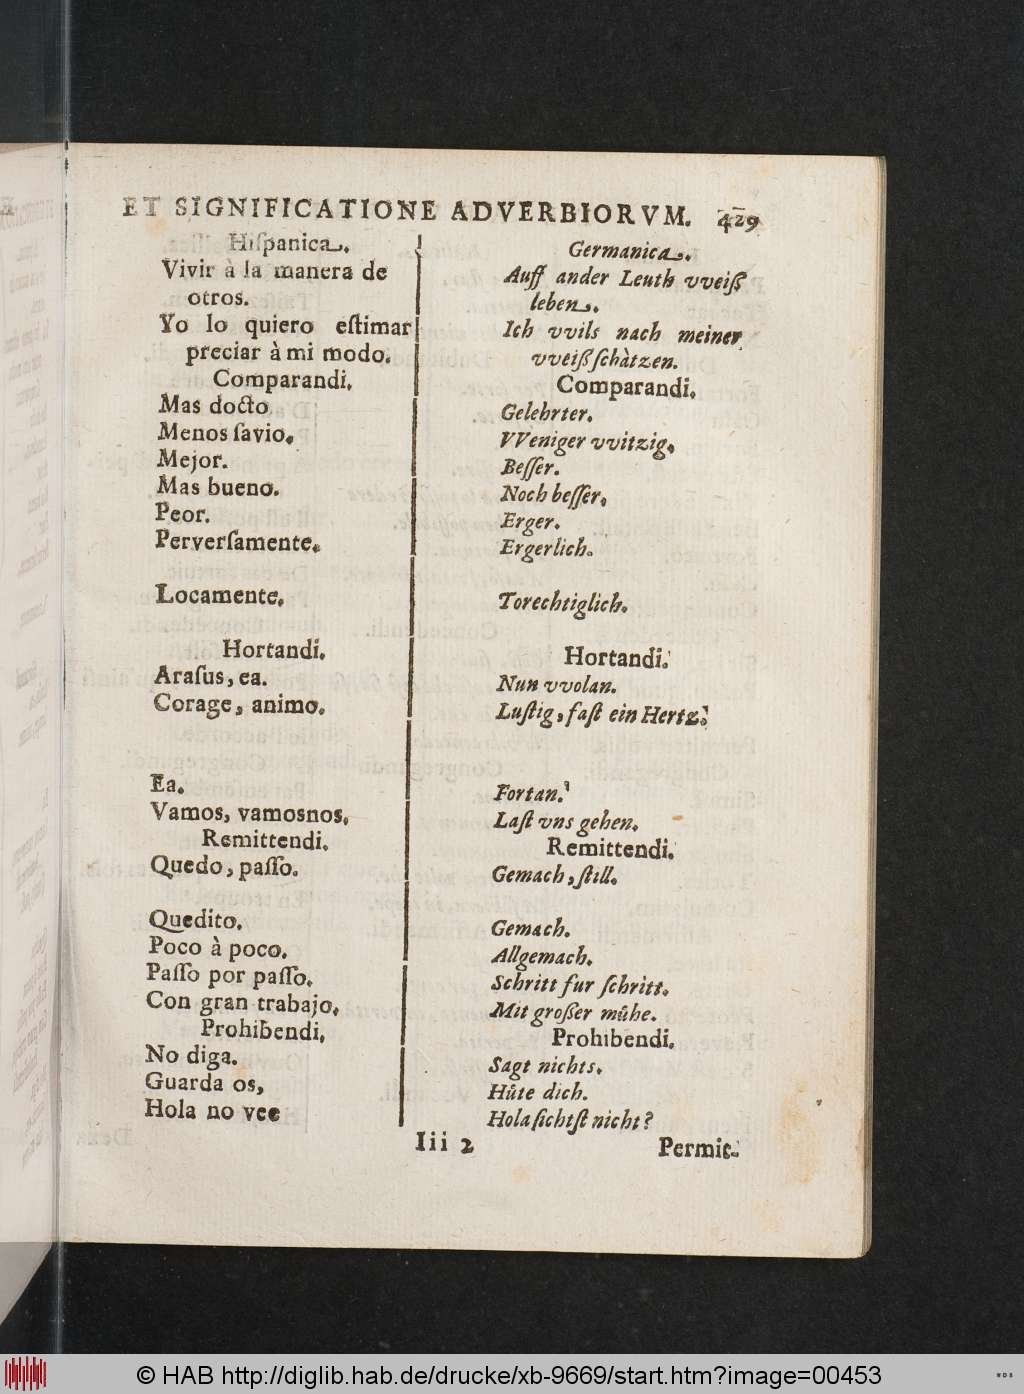 ET SIGNIFICATIONE ADVERBIORVM. 429
Hiſpanica.
Vivir à la manera de
otros.
Yo lo quiero eſtimar
preciar à mi modo.
Comparandi.
Mas docto
Menos ſavio.
Mejor.
Mas bueno.
Peor.
Perverſamente.
Locamente.
Hortandi.
Araſus, ea.
Corage, animo.
Ea.
Vamos, vamosnos.
Remittendi.
Quedo, paſſo.
Quedito.
Poco à poco.
Paſſo por paſſo.
Con gran trabajo.
Prohibendi.
No diga.
Guarda os,
Hola no vee
Germanica.
Auff ander Leuth vveiß
leben.
Ich vvils nach meiner
vveiß ſchàtzen.
Comparandi.
Gelehrter.
VVeniger vvitzig.
Beſſer.
Noch beſſer.
Erger.
Ergerlich.
Torechtiglich.
Hortandi.
Nun vvolan.
Luſtig, faſt ein Hertz.
Fortan.
Laſt vns gehen.
Remittendi.
Gemach, ſtill.
Gemach.
Allgemach.
Schritt fur ſchritt.
Mit großer můhe.
Prohibendi.
Sagt nichts.
Hůte dich.
Hola ſichtſt nicht?
Iii 2 Permit-
© HAB http://diglib.hab.de/drucke/xb-9669/start.htm?image=00453